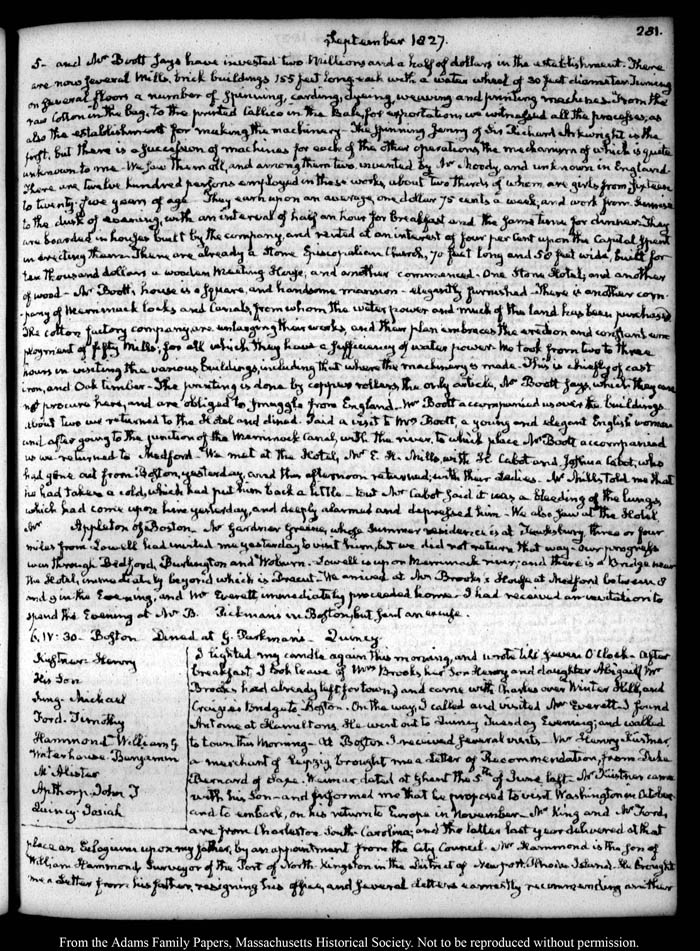 281.
September 1827.
5- and Mr Boott says have invested two Millions and a half of dollars in the establishment. There
are now several Mills, brick buildings 155 feet long, each with a water wheel of 30 feet diameter turning
on several floors a number of spinning, carding, dyeing, weaving and printing machines. From the
raw Cotton in the bag, to the printed Callico in the Bale, for exportation, we witnessed all the processes, as
also the establishment for making the machinery. The Spinning Jenny of Sir Richard Arkwright is the
first, but there is a succession of machines for each of the other operations the mechanism of which is quite
unknown to me. We saw them all, and among them two, invented by Mr Moody, and unknown in England.
There are twelve hundred persons employed in these works, about two thirds of whom are girls from fifteen
to twenty-five years of age. They earn upon an average, one dollar 75 cents a week, and work from Sunrise
to the dusk of evening, with an interval of half an hour for breakfast and the same time for dinner. They
are boarded in houses built by the company, and rented at an interest of four per cent upon the Capital spent
in erecting them. There are already a Stone Episcopalian Church, 70 feet long and 50 feet wide, built for
ten thousand dollars a wooden Meeting House, and another commenced. One Stone Hotel, and another
of wood - Mr Boott's house is a square, and handsome mansion - elegantly furnished. There is another com-
pany of Merrimack locks and Canals, from whom the water power and much of the land has been purchased
The cotton factory company, are enlarging their works, and their plan embraces the erection and constant em-
ployment of fifty Mills; for all which they have a sufficiency of water power. We took from two to three
hours in visiting the various buildings, including that where the machinery is made. This is chiefly of cast
iron, and Oak timber - The printing is done by copper rollers, the only article, Mr Boott says, which they can
not procure here, and are obliged to smuggle from England. Mr Boott accompanied us over the buildings.
About two we returned to the Hotel and dined. Paid a visit to Mrs Boott, a young and elegant English woman
and after going to the junction of the Merrimack Canal, with the river, to which place Mr Boott accompanied
us we returned to Medford. We met at the Hotel, Mr E. H. Mills, with H. Cabot and Joshua Cabot, who
had gone out from Boston, yesterday, and this afternoon returned, with their Ladies. Mr Mills, told me that
he had taken a cold, which had put him back a little - but Mr Cabot said it was a bleeding of the lungs
which had come upon him yesterday, and deeply alarmed and depressed him. We also saw at the Hotel
Mr Appleton of Boston. Mr Gardner Greene, whose Summer residence is at Tewksbury three or four
miles from Lowell had invited me yesterday to visit him, but we did not return that way. Our progress
was through Bedford, Burlington and Woburn. Lowell is upon Merrimack river, and there is a Bridge near
the Hotel, immediately beyond which is Dracut. We arrived at Mr Brooks's House at Medford between 8
and 9 in the Evening, and Mr Everett immediately proceeded home. I had received an invitation to
spend the Evening at Mr B. Pickman's in Boston, but sent an excuse.
6. IV. 30. Boston Dined at G. Parkman's. Quincy
Küstner. Henry
His Son
King. Michael
Ford. Timothy
Hammond William G
Waterhouse. Benjamin
McAlister
Apthorp. John T
Quincy. Josiah
I lighted my candle again this morning, and wrote till seven O'Clock. After
breakfast, I took leave of Mrs Brooks, her Son Henry, and daughter Abigail (Mr
Brooks had already left for town) and came with Charles over Winter Hill, and
Craigie's Bridge to Boston. On the way, I called and visited Mr Everett. I found
Antoine at Hamilton's. He went out to Quincy Tuesday Evening; and walked
to town this Morning. At Boston I received several visits. Mr Henry Küstner,
a merchant of Leipzig, brought me a Letter of Recommendation, from Duke
Bernard of Saxe-Weimar dated at Ghent the 5th of June last. Mr Küstner came
with his Son - and informed me that he proposed to visit Washington in October
and to embark, on his return to Europe in November. Mr King and Mr Ford,
are from Charleston South Carolina; and the latter last year delivered at that
place an Eulogium upon my father, by an appointment from the City Council. Mr Hammond is the Son of
William Hammond Surveyor of the Port of North-Kingston in the District of Newport Rhode Island. He brought
me a Letter from his father, resigning his office, and several letters earnestly recommending another
From the Adams Family Papers, Massachusetts Historical Society. Not to be reproduced without permission.